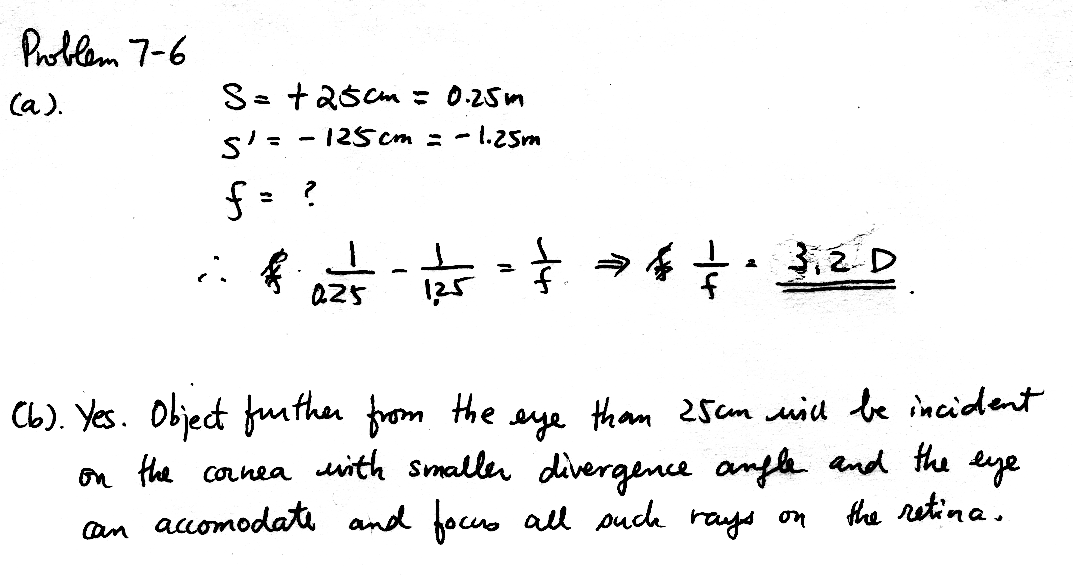 Problem 7-6
(a). S = +25cm = 0.25m
s' = -125cm = -1.25m
f = ?
∴ 1/0.25 - 1/1.25 = 1/f ⇒ 1/f = 3.2 D.
(b). Yes. Object further from the eye than 25cm will be incident
on the cornea with smaller divergence angle and the eye
can accomodate and focus all such rays on the retina.